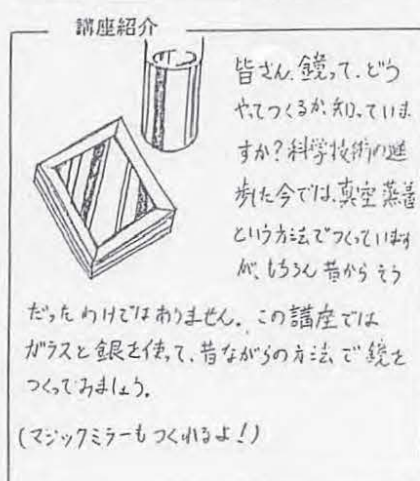 講座紹介
皆さん、鏡って、どう
やってつくるか、知っていま
すか?科学技術の進
歩した今では、真空蒸着
という方法でつくっています
が、もちろん昔からそう
だったわけではありません。この講座では
ガラスと銀を使って、昔ながらの方法で鏡を
つくってみましょう。
(マジックミラーもつくれるよ!)